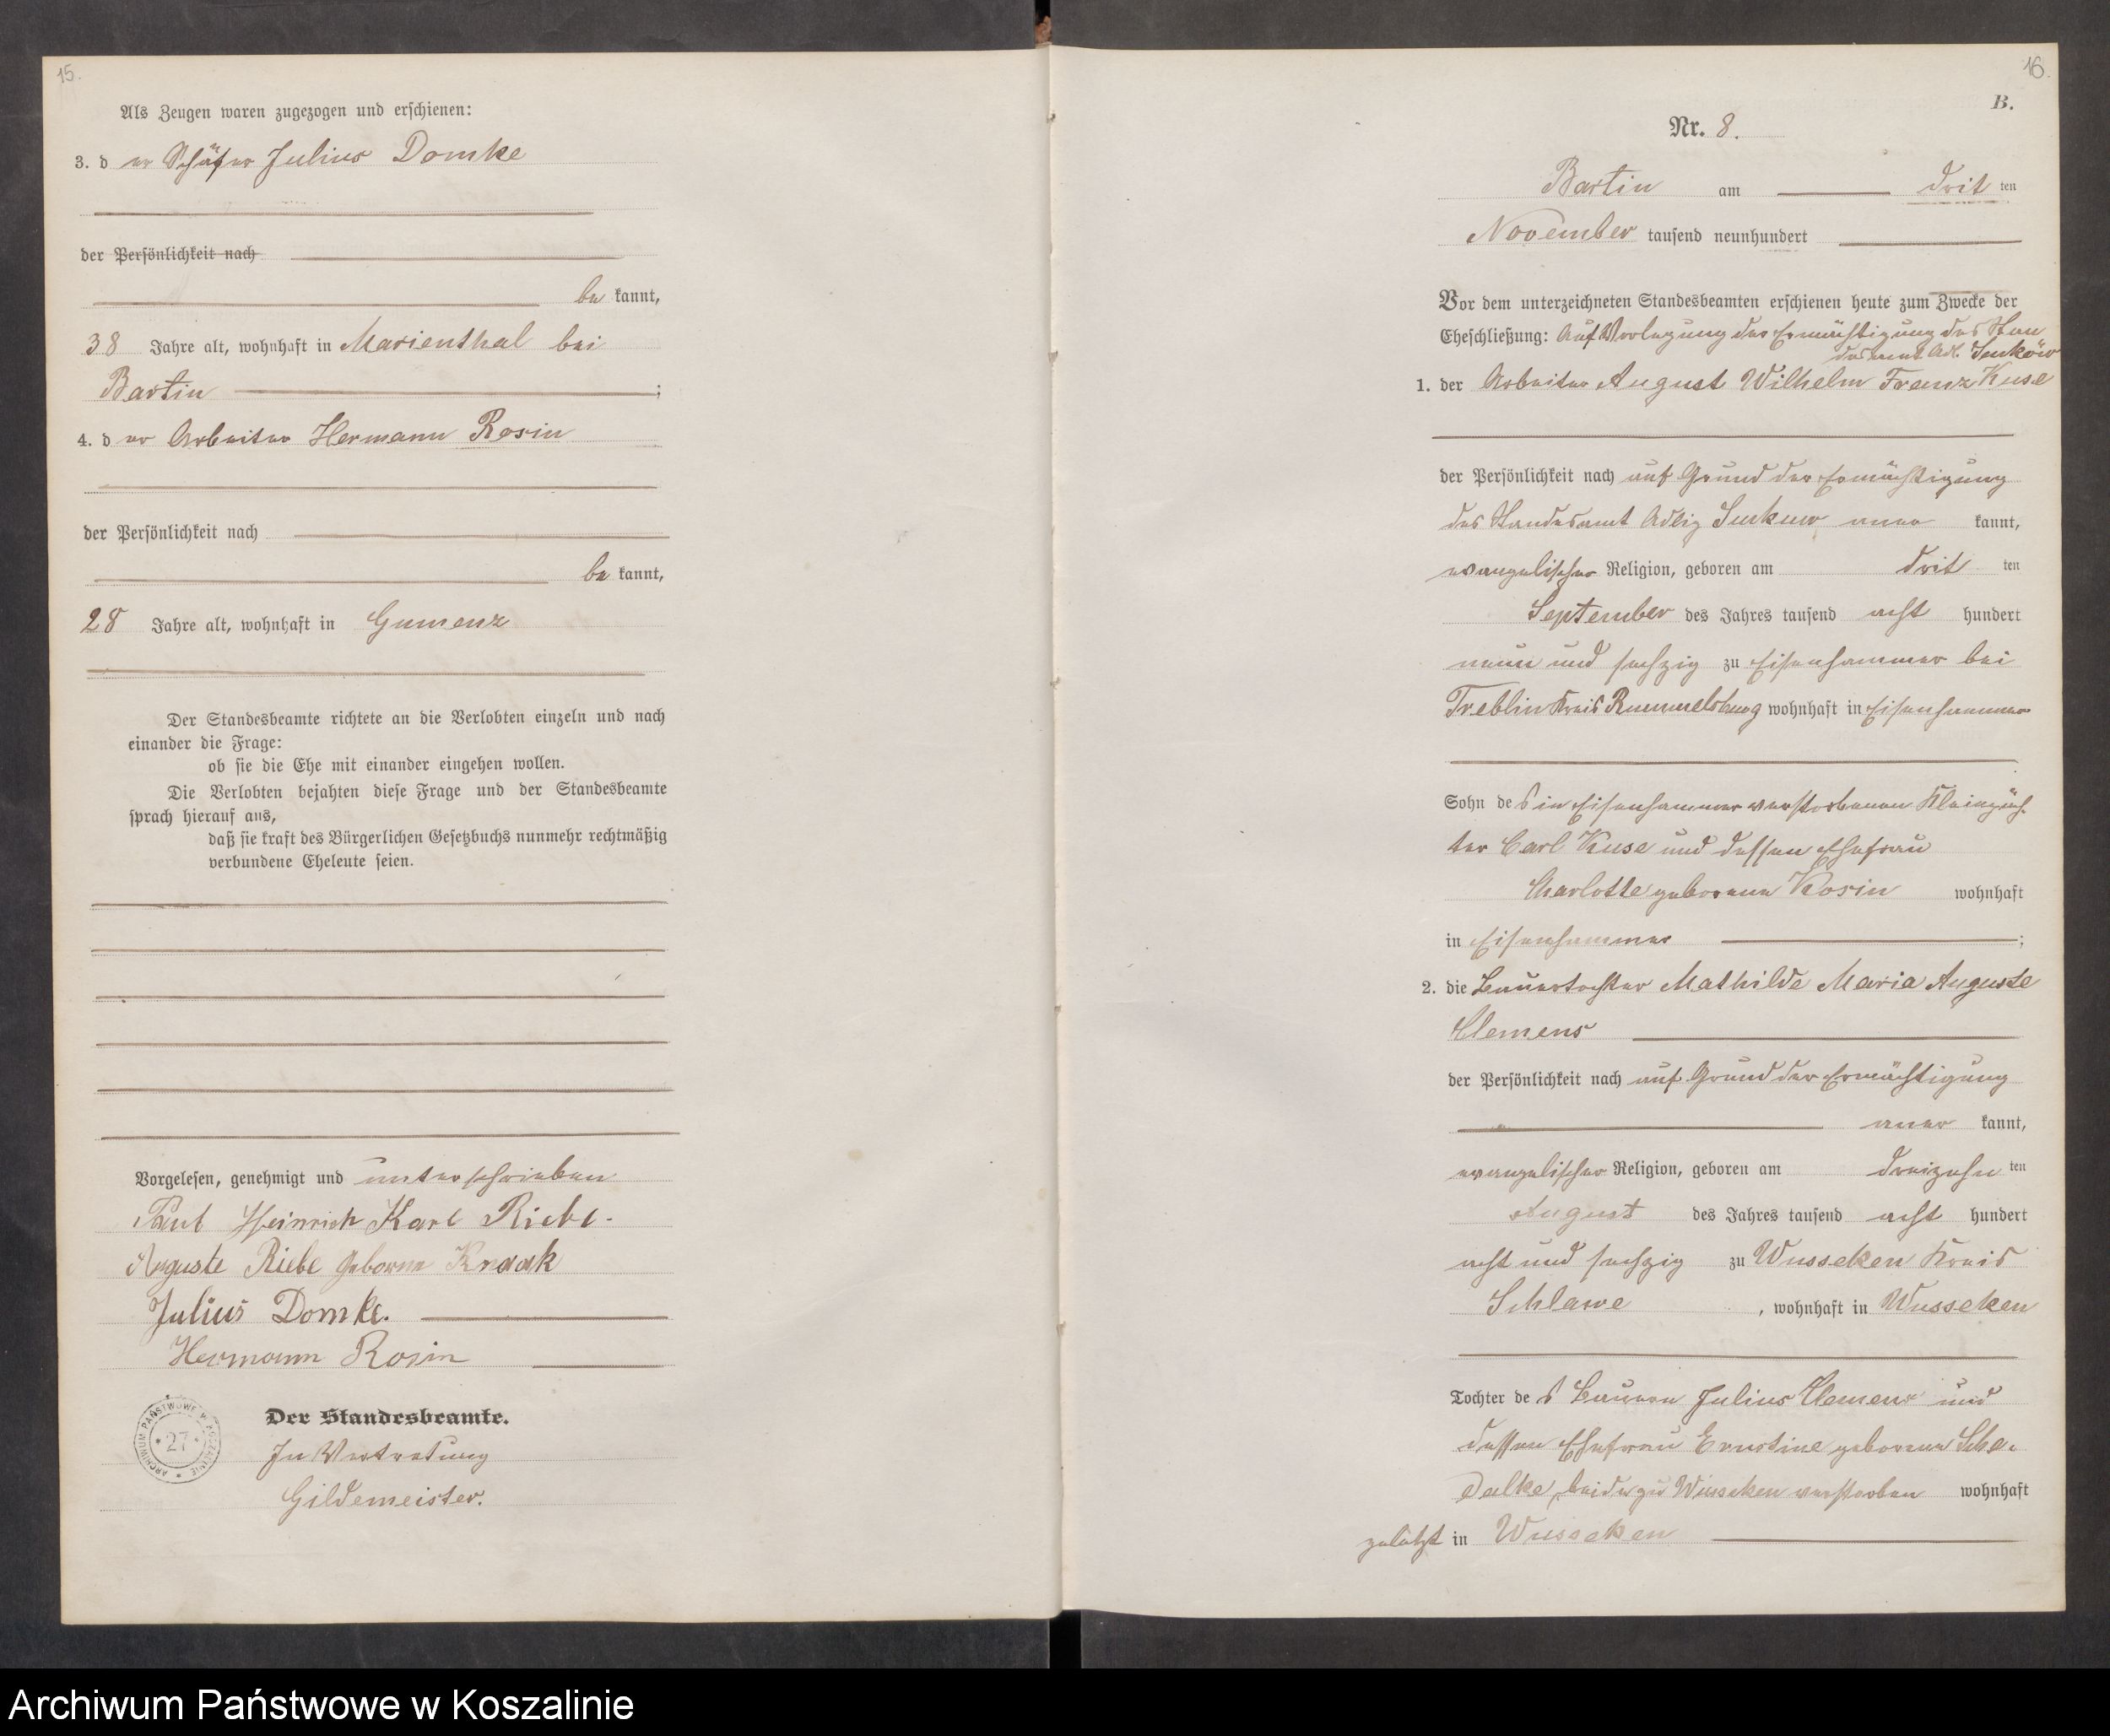 15.
Als Zeugen waren zugezogen und erschienen:
3. der Schäfer Julius Domke
der Persönlichkeit nach
bekannt,
38 Jahre alt, wohnhaft in Marienthal bei
Bartin ;
4. der Arbeiter Hermann Rosin
der Persönlichkeit nach
bekannt,
28 Jahre alt, wohnhaft in Gumenz
Der Standesbeamte richtete an die Verlobten einzeln und nach
einander die Frage:
ob sie die Ehe mit einander eingehen wollen.
Die Verlobten bejahten diese Frage und der Standesbeamte
sprach hierauf aus,
daß sie kraft des Bürgerlichen Gesetzbuchs nunmehr rechtmäßig
verbundene Eheleute seien.
Vorgelesen, genehmigt und unterschrieben
Paul Heinrich Karl Riebe.
Auguste Riebe geborne Knaak
Julius Domke.
Hermann Rosin
Der Standesbeamte.
In Vertretung
Gildemeister.
ARCHIWUM PAŃSTWOWE W KOSZALINIE
* 27 *
16.
B.
Nr. 8.
Bartin am dritten
November tausend neunhundert
Vor dem unterzeichneten Standesbeamten erschienen heute zum Zwecke der
Eheschließung: Auf Vorlegung der Ermächtigung des Stan
desamt Adl. Suckow
1. der Arbeiter August Wilhelm Franz Kuse
der Persönlichkeit nach auf Grund der Ermächtigung
des Standesamt Adlig Suckow anerkannt,
evangelischer Religion, geboren am dritten
September des Jahres tausend acht hundert
neun und sechzig zu Eisenhammer bei
Treblin Kreis Rummelsburg wohnhaft in Eisenhammer
Sohn des in Eisenhammer verstorbenen Kleinpäch-
ter Carl Kuse und dessen Ehefrau
Charlotte geborene Kosin wohnhaft
in Eisenhammer ;
2. die Bauertochter Mathilde Maria Auguste
Clemens
der Persönlichkeit nach auf Grund der Ermächtigung
anerkannt,
evangelischer Religion, geboren am dreizehnten
August des Jahres tausend acht hundert
acht und sechzig zu Wusseken Kreis
Schlawe , wohnhaft in Wusseken
Tochter des Bauern Julius Clemens und
dessen Ehefrau Ernstine geborene Scha-
dalke, beide zu Wusseken verstorben wohnhaft
zuletzt in Wusseken
Archiwum Państwowe w Koszalinie